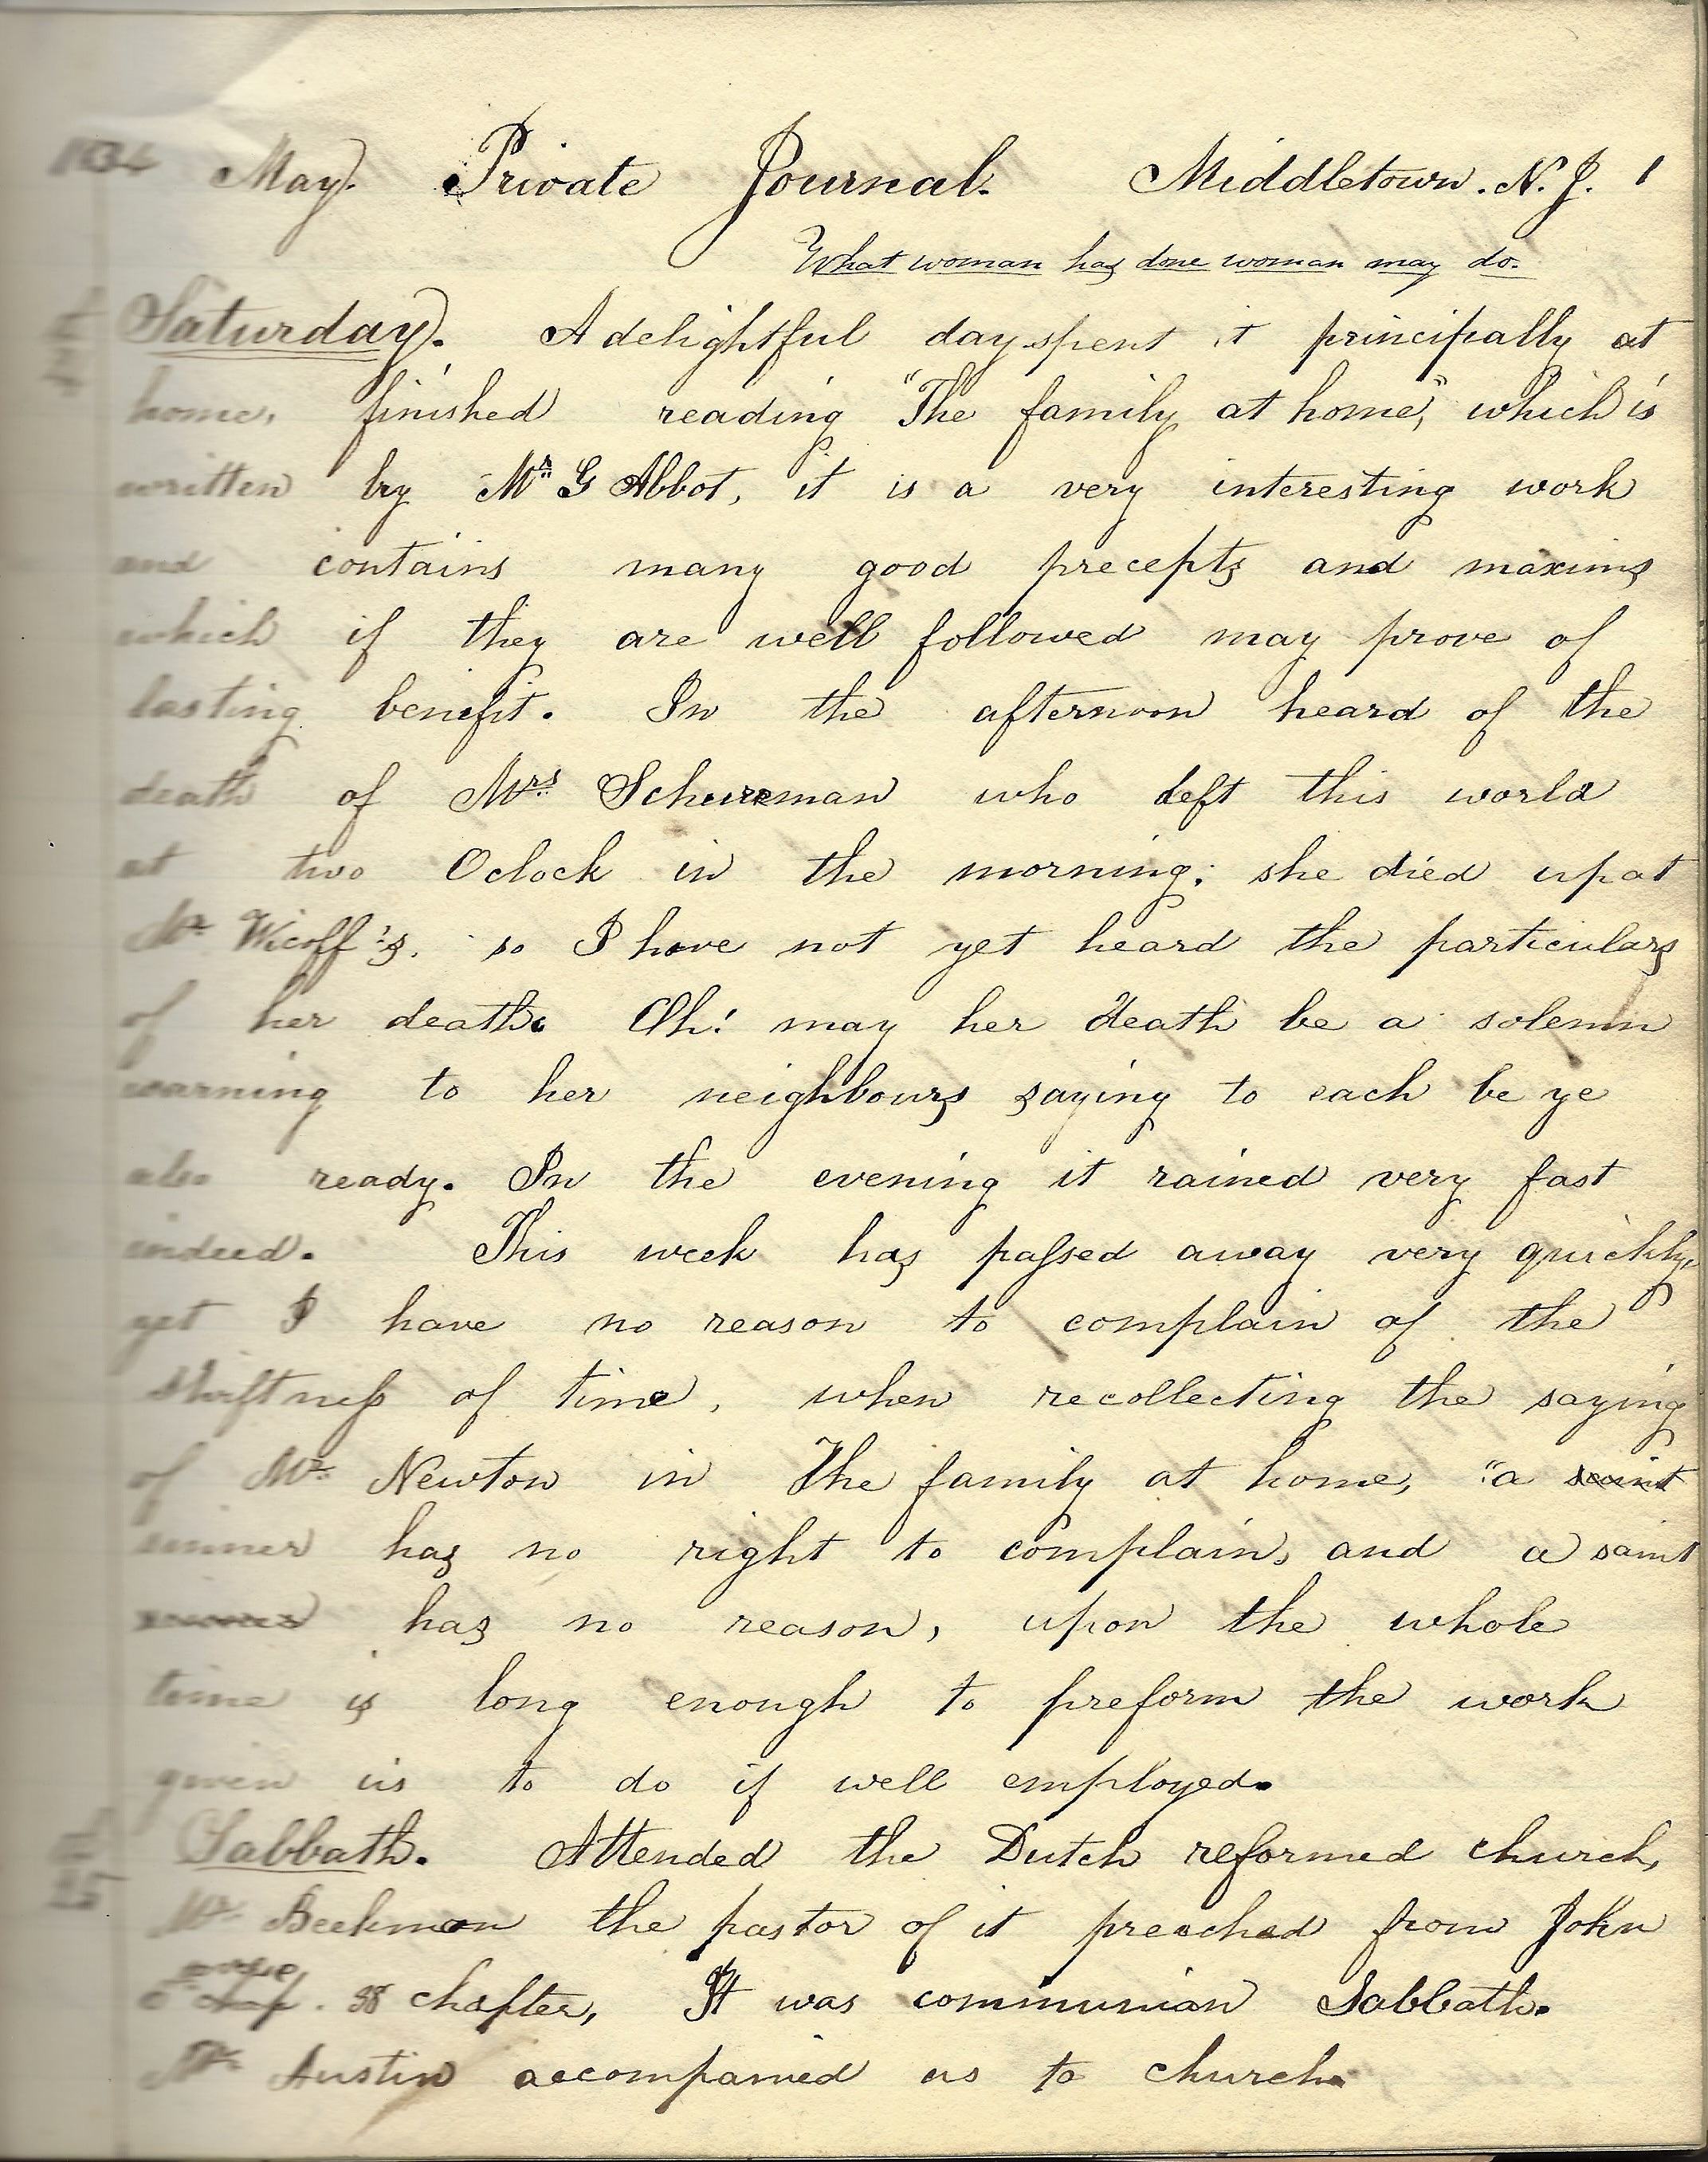 1834 May. Private Journal. Middletown. N. J. 1
What woman has done woman may do.
Saturday. A delightful day spent it principally at
home, finished reading "The family at home," which is
written by Mr G Abbot, it is a very interesting work
and contains many good precepts and maxims
which if they are well followed may prove of
lasting benefit. In the afternoon heard of the
death of Mrs Schureman who left this world
at two Oclock in the morning; she died up at
Mr Wicoff's. so I have not yet heard the particulars
of her death. Oh! may her death be a solemn
warning to her neighbours saying to each be ye
also ready. In the evening it rained very fast
indeed. This week has passed away very quickly,
yet I have no reason to complain of the
swiftness of time, when recollecting the saying
of Mr Newton in The family at home, "a saint
sinner has no right to complain, and a saint
has no reason, upon the whole
time is long enough to preform the work
given us to do if well employed.
Sabbath. Attended the Dutch reformed church,
Mr Beekman the pastor of it preached from John
verse
chapter, It was communion Sabbath.
Mr Austin accompanied us to church.